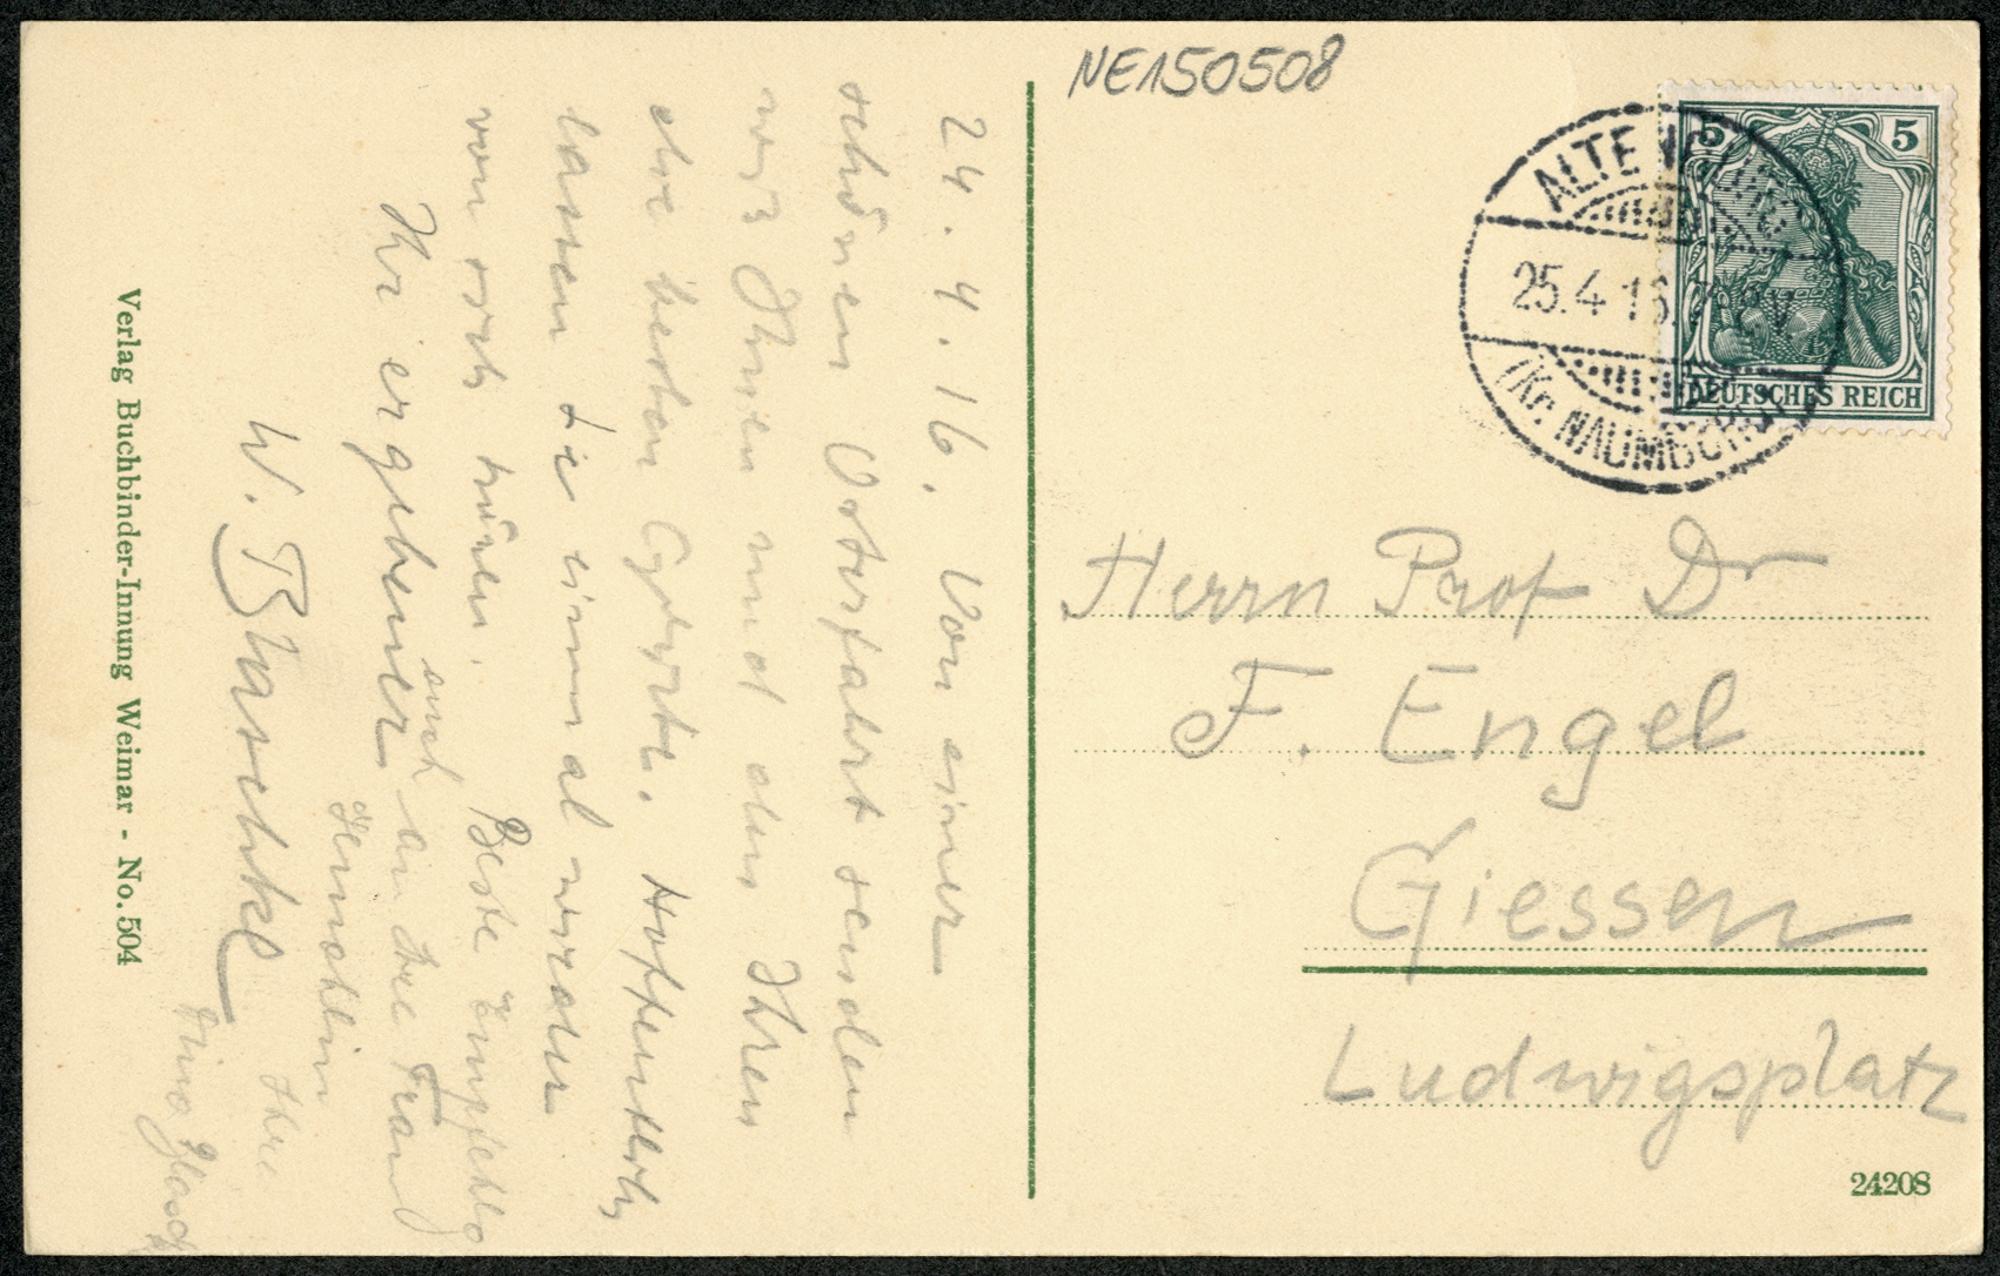 NE150508
5 5
DEUTSCHES REICH
ALTE
25.4 16. 7-8V
(Kr. NAUMBURG)
Herrn Prof Dr
F. Engel
Giessen
Ludwigsplatz
24208
24. 4. 16. Von einer
schönen Osterfahrt senden
wir Ihnen und den Ihren
die besten Hoffentlich
lassen Sie einmal wieder
von sich hören.
Ihr ergebener
W. Blaschke
Beste
auch an Ihre Frau
Gemahlin
Ihre
Verlag Buchbinder-Innung Weimar - No. 504